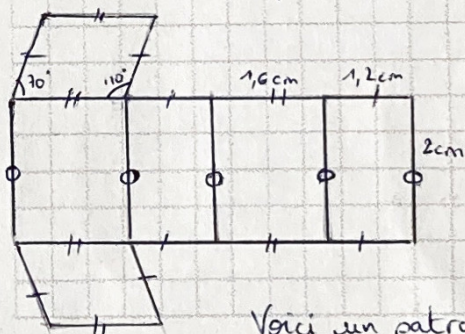 70° 110° 1,6cm 1,2cm
2cm
Voici un patro